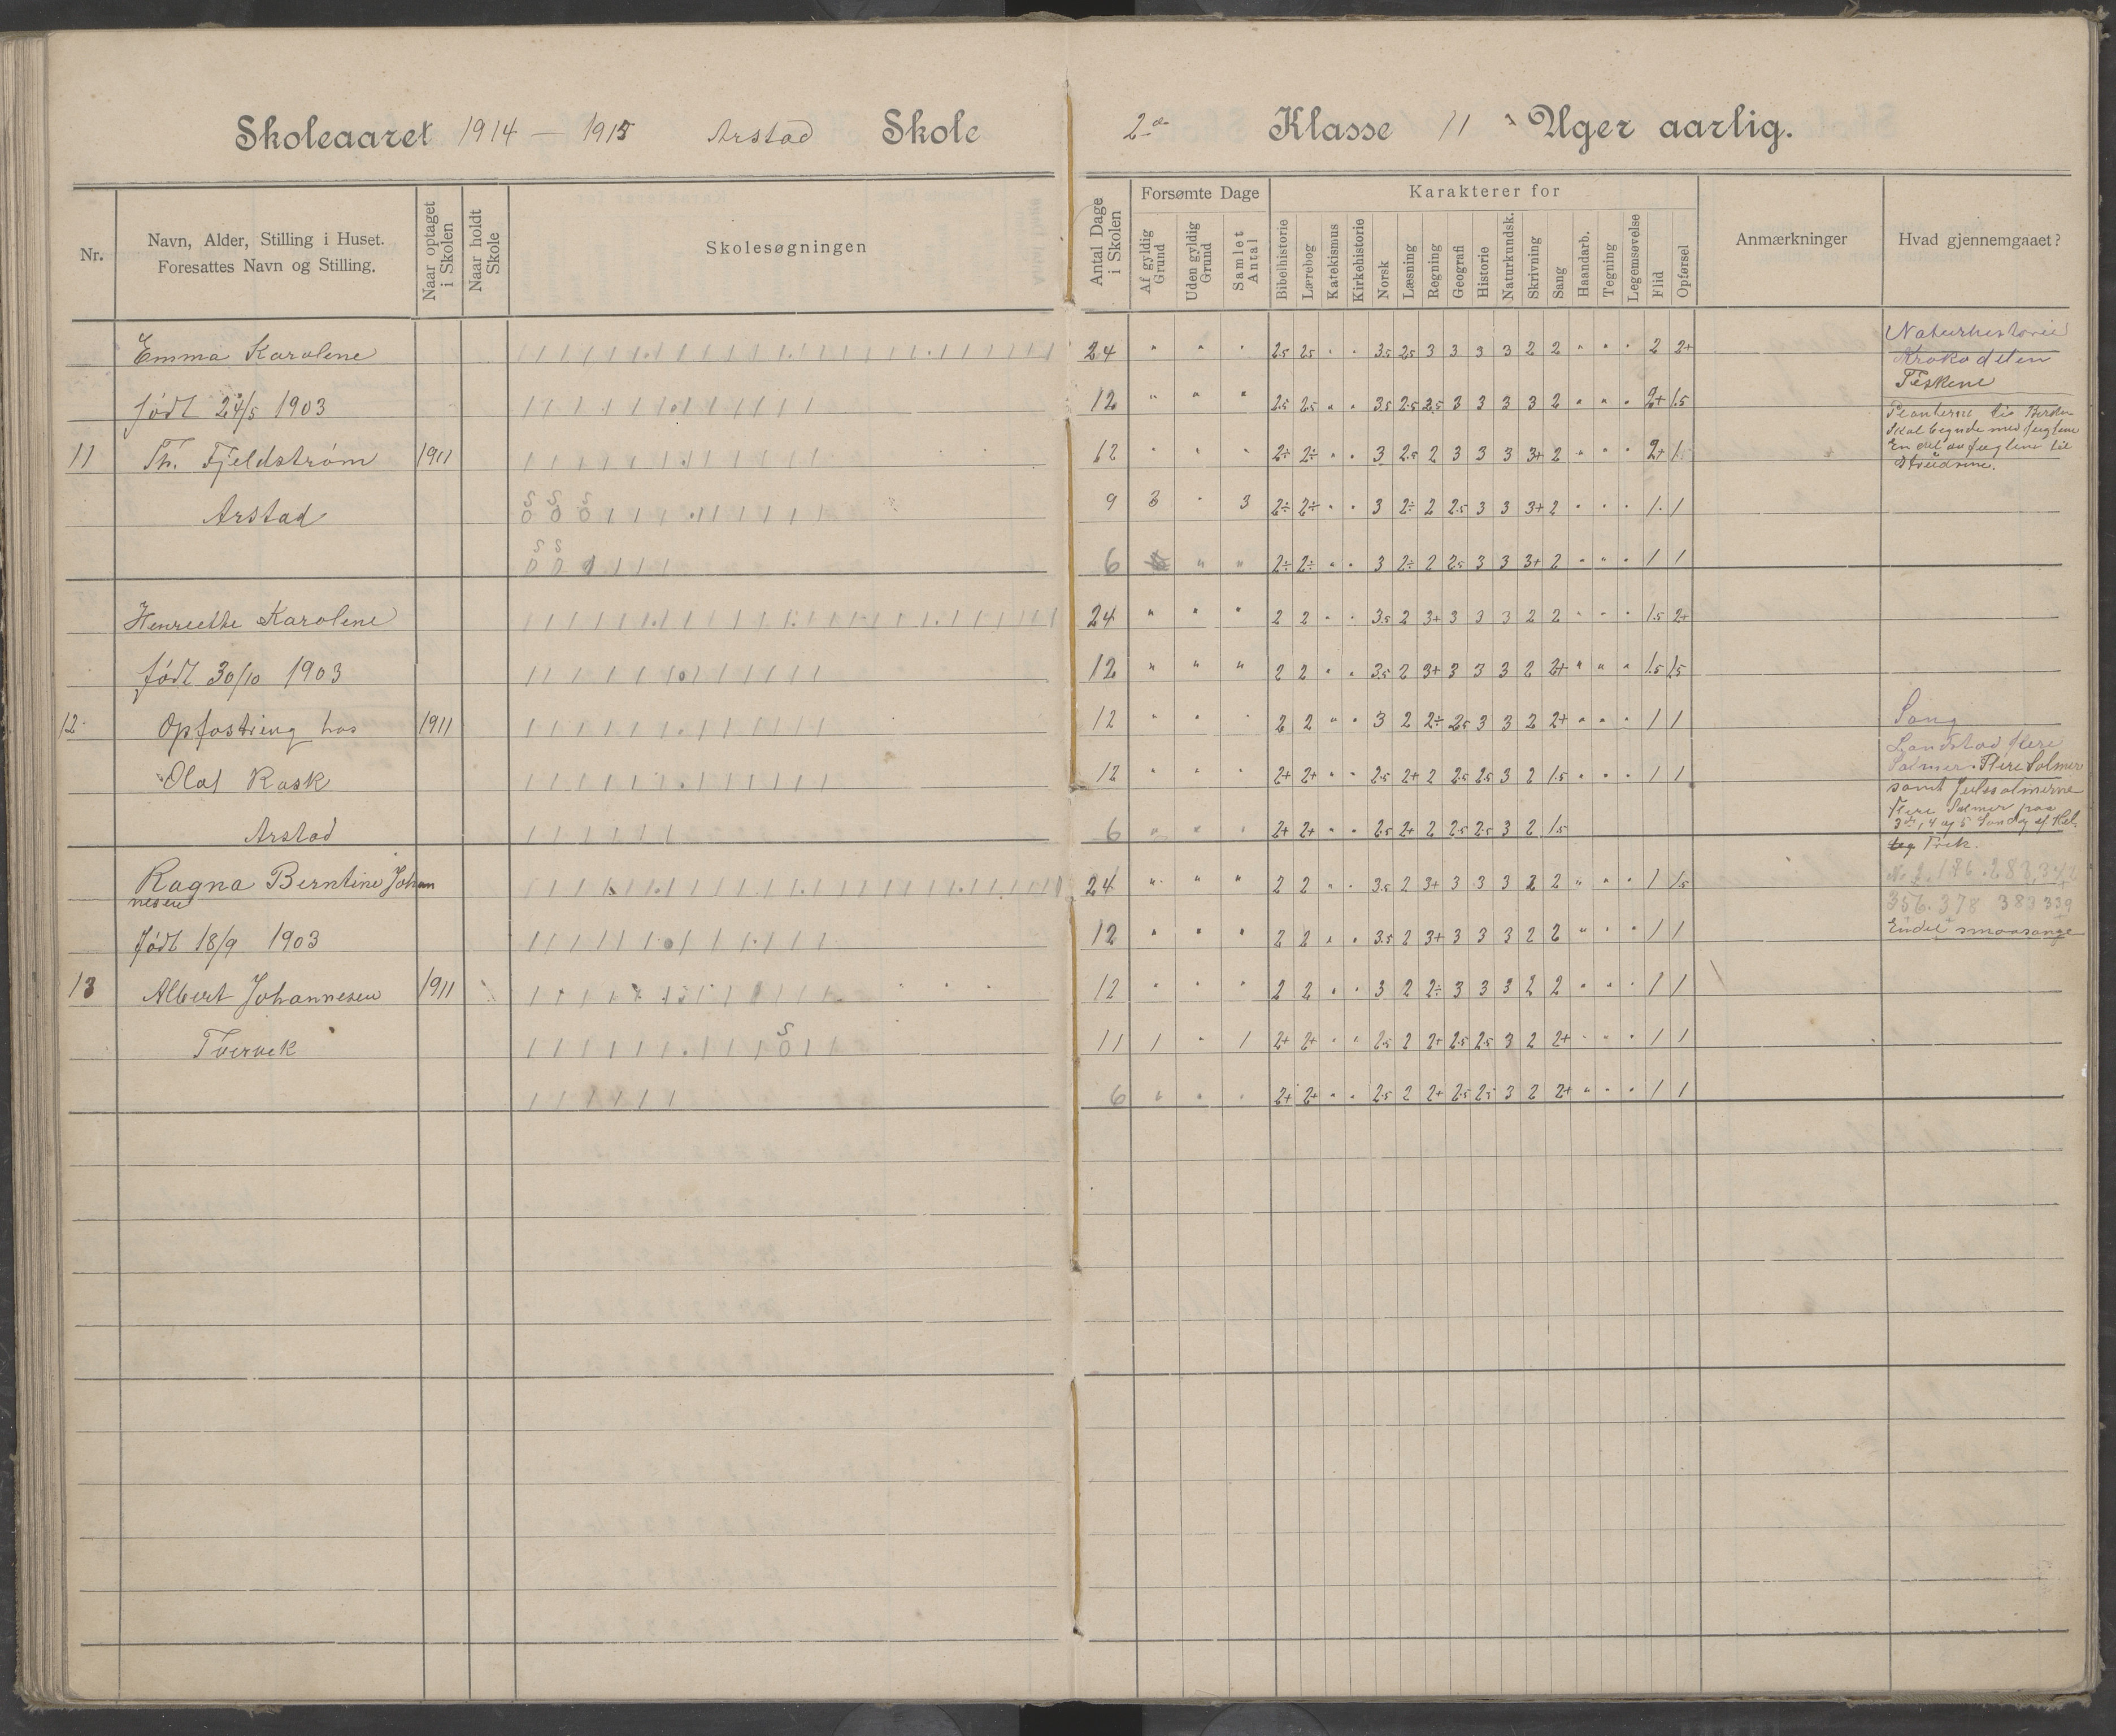 Skoleaaret 1914 — 1915 Arstad Skole
2den Klasse 11 Uger aarlig.
Nr.
Navn, Alder, Stilling i Huset.
Foresattes Navn og Stilling.
Naar optaget i Skolen
Naar holdt Skole
Skolesøgningen
Antal Dage i Skolen
Forsømte Dage
Af gyldig Grund
Uden gyldig Grund
Samlet Antal
Karakterer for
Bibelhistorie
Lærebog
Katekismus
Kirkehistorie
Norsk
Læsning
Regning
Geografi
Historie
Naturkundsk.
Skrivning
Sang
Haandarb.
Tegning
Legemsøvelse
Flid
Opførsel
Anmærkninger
Hvad gjennemgaaet?
Emma Karolene 24 " " " 2.5 2.5 " " 3.5 2.5 3 3 3 3 2 2 " " " 2 2+
født 24/5 1903 12 " " " 2.5 2.5 " " 3.5 2.5 2.5 3 3 3 3 2 " " " 2+ 1.5
11 Th. Fjeldstrøm 1911 12 " " " 2÷ 2÷ " " 3 2.5 2 3 3 3 3+ 2 " " " 2+ 1
Arstad 9 3 " 3 2÷ 2÷ " " 3 2÷ 2 2.5 3 3 3+ 2 " " " 1 1
6 " " 2÷ 2÷ " " 3 2÷ 2 2.5 3 3 3+ 2 " " " 1 1
Henriethe Karolene 24 " " " 2 2 " " 3.5 2 3+ 3 3 3 2 2 " " " 1.5 2+
født 30/10 1903 12 " " " 2 2 " " 3.5 2 3+ 3 3 3 2 2+ " " " 1.5 1.5
12. Opfostring hos 1911 12 " " " 2 2 " " 3 2 2÷ 2.5 3 3 2 2+ " " " 1 1
Olaf Rask 12 " " " 2+ 2+ " " 2.5 2+ 2 2.5 2.5 3 2 1.5 " " " 1 1
Arstad 6 " " " 2+ 2+ " " 2.5 2+ 2 2.5 2.5 3 2 1.5
Ragna Berntine Johan
nesen 24 " " " 2 2 " " 3.5 2 3+ 3 3 3 2 2 " " " 1 1.5
født 18/9 1903 12 " " " 2 2 " " 3.5 2 3+ 3 3 3 2 2 " " " 1 1
13 Albert Johannesen 1911 12 " " " 2 2 " " 3 2 2÷ 3 3 3 2 2 " " " 1 1
Tvervek 11 1 " 1 2+ 2+ " " 2.5 2 2+ 2.5 2.5 3 2 2+ " " " 1 1
6 " " " 2+ 2+ " " 2.5 2 2+ 2.5 2.5 3 2 2+ " " " 1 1
Naturhistorie
Krokodillen
Fiskene
Skal begynde med fuglene
En del av fuglene til
Strudsene.
Sang
Landstad flere
Salmer. Flere Salmer
samt Julesalmerne
Flere Salmer paa
Endel smaasange